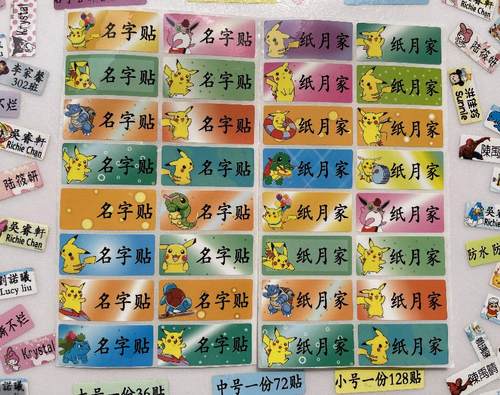 Krystal
Richie Chan
李家馨
302班
不烂
Richie Chan
陆筱妍
Richie Chan
Lucy liu
不烂
Krystal
諾曦
名字贴 名字贴 纸月家 纸月家
名字贴 名字贴 纸月家 纸月家
名字贴 名字贴 纸月家 纸月家
名字贴 名字贴 纸月家 纸月家
名字贴 名字贴 纸月家 纸月家
名字贴 名字贴 纸月家 纸月家
名字贴 名字贴 纸月家 纸月家
名字贴 名字贴 纸月家 纸月家
Richie Chan
陆筱妍
Sunnie
防水防
大号一份36贴
中号一份72贴
小号一份128贴